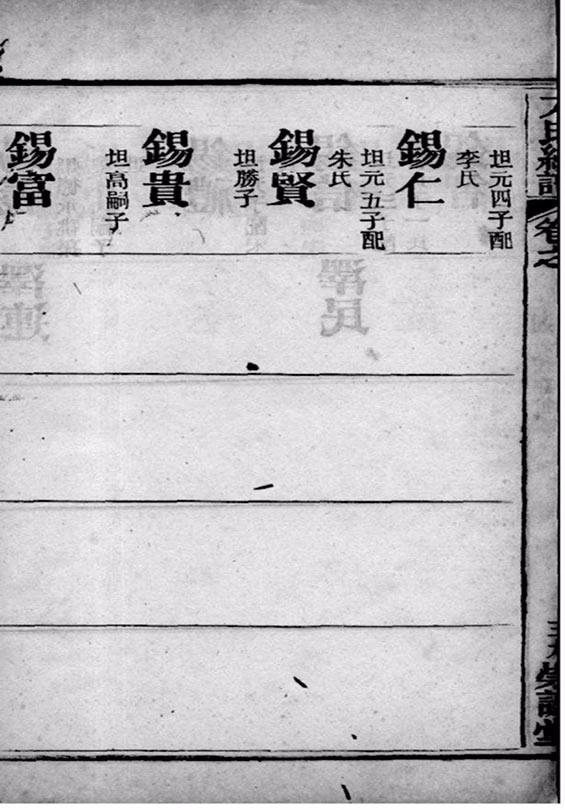 氏續譜 卷之
坦元四子配
李氏
錫仁
坦元五子配
朱氏
錫賢
坦勝子
錫貴
坦高嗣子
錫富